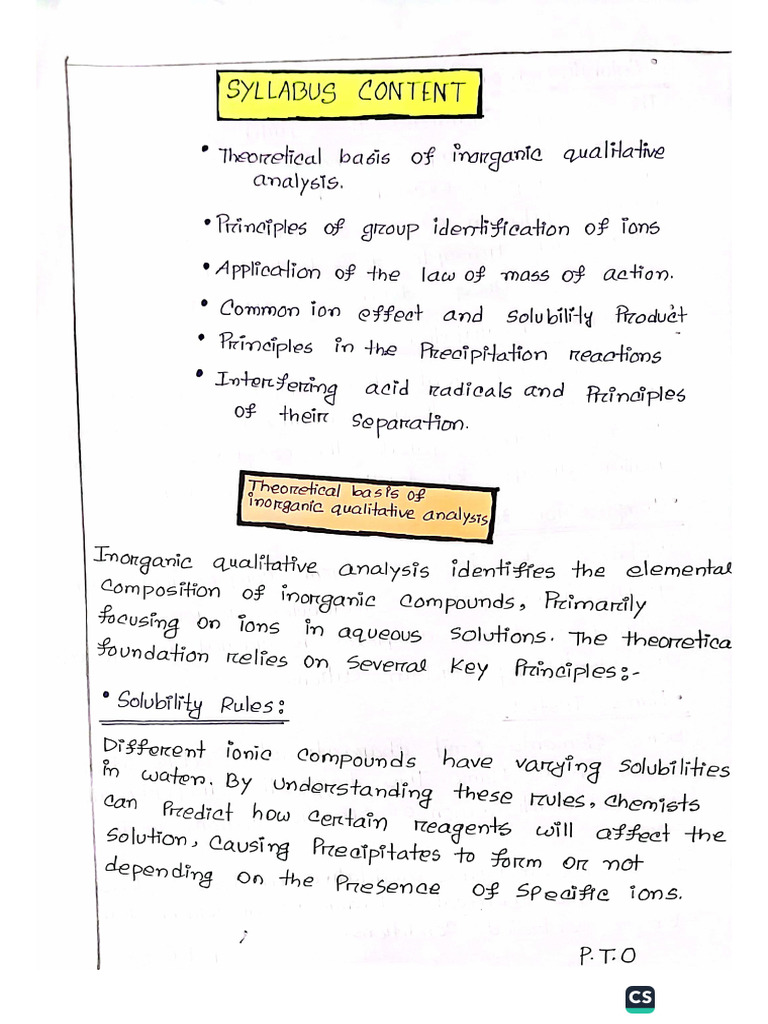 SYLLABUS CONTENT
• Theoretical basis of inorganic qualitative
analysis.
• Principles of group identification of ions
• Application of the law of mass of action.
• Common ion effect and Solubility Product
• Principles in the Precipitation reactions
• Interfering acid radicals and Principles
of their separation.
Theoretical basis of
inorganic qualitative analysis
Inorganic qualitative analysis identifies the elemental
composition of inorganic compounds, Primarily
focusing on ions in aqueous solutions. The theoretica
foundation relies on several key Principles:-
• Solubility Rules:
Different ionic compounds have varying solubilities
in water. By understanding these rules, chemists
can Predict how certain reagents will affect the
solution, causing Precipitates to form or not
depending on the Presence of specific ions.
P.T.O
CS